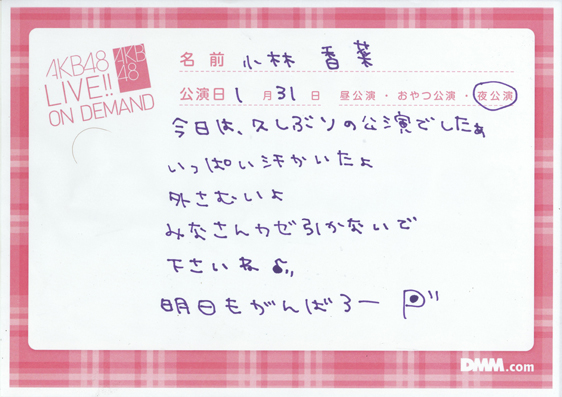 AKB48
LIVE!!
ON DEMAND
AKB
48
名前 小林 香葉
公演日 1月31日 昼公演・おやつ公演・夜公演
今日は、久しぶりの公演でしたぁ
いっぱい汗かいたよ
外さむいよ
みなさんカゼ引かないで
下さいね
明日もがんばろー
DMM.com